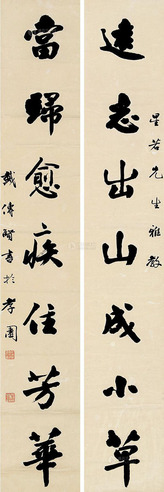 遠志出山成小草
星若先生雅教
當歸愈疾住芳華
戴傳賢書於孝園